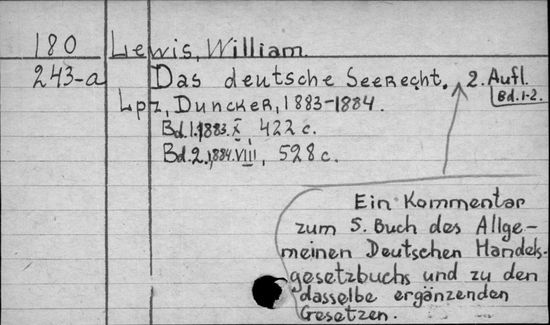 180 Lewis, William.
243-a Das deutsche Seerecht. 2. Aufl.
Bd.1-2.
Lpz, Duncker, 1883-1884.
Bd.1.1883. X, 422 c.
Bd.2.1884. VIII, 528 c.
Ein Kommentar
zum 5. Buch des Allge-
meinen Deutschen Handels-
gesetzbuchs und zu den
dasselbe ergänzenden
Gesetzen.